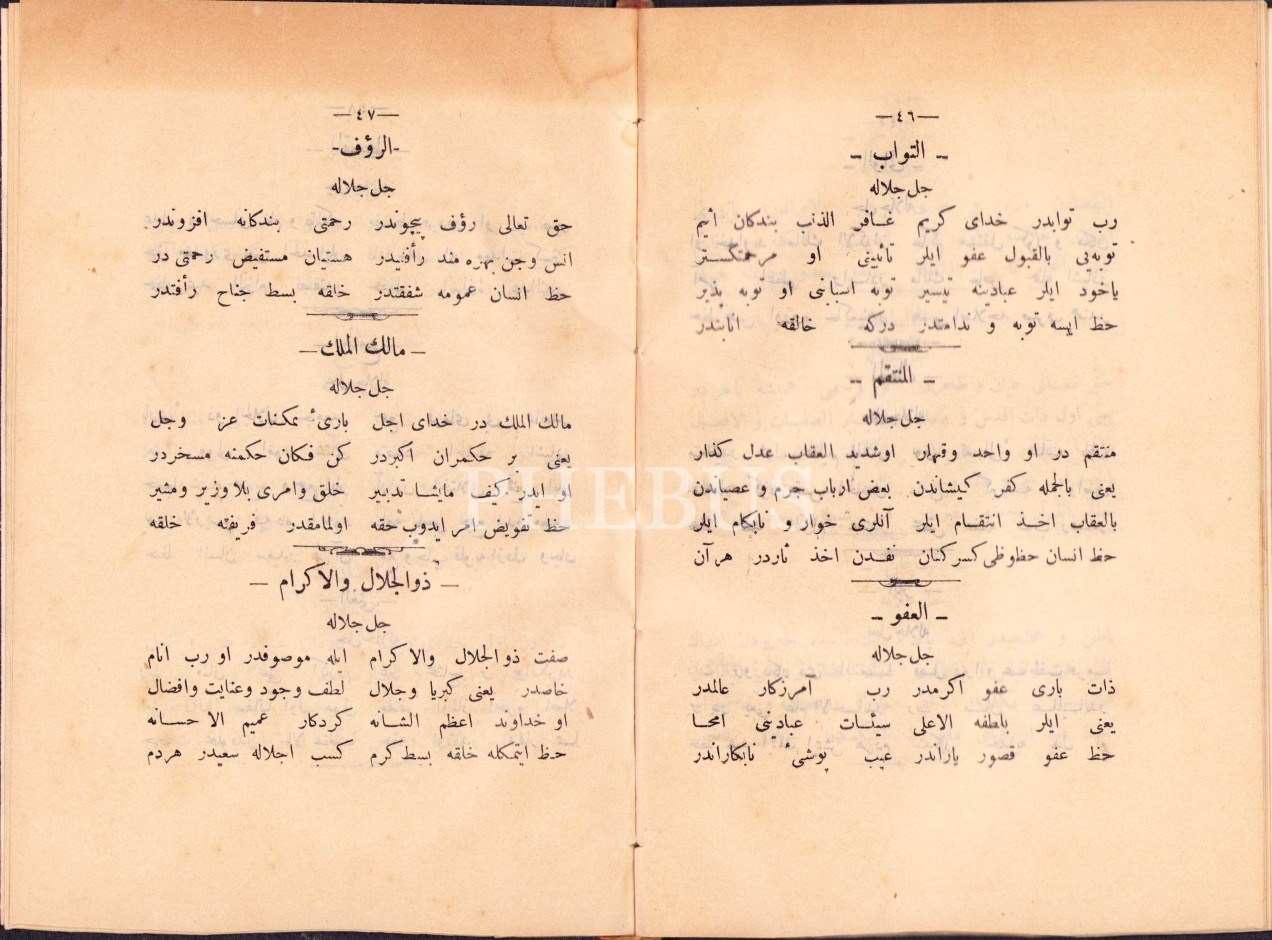 —٤٦—
— التواب —
جل جلاله
رب توابدر خدای کریم غافر الذنب بندکان أثیم
توبه‌یی بالقبول عفو ایلر تائبینی او مرحمتکستر
یاخود ایلر عبادینه تیسیر توبه اسبابنی او توبه پذیر
حظ ایسه توبه و ندامتدر درکه خالقه انابتدر
— المنتقم —
جل جلاله
منتقم در او واحد وقهار اوشدید العقاب عدل کذار
یعنی بالجمله کفر کیشاندن بعض ارباب جرم و عصیاندن
بالعقاب اخذ انتقام ایلر آنلری خوار و نابکام ایلر
حظ انسان حظوظی کسر کنان نفسدن اخذ ثاردر هر آن
— العفو —
جل جلاله
ذات باری عفو اکرمدر رب آمرزکار عالمدر
یعنی ایلر بلطفه الاعلی سیئات عبادینی امحا
حظ عفو قصور یاراندر عیب پوشیٔ نابکاراندر
—٤٧—
-الرؤف-
جل جلاله
حق تعالی رؤف بیچوندر رحمتی بندکانه افزوندر
انس وجن بهره مند رأفتیدر هستیان مستفیض رحمتی در
حظ انسان عمومه شفقتدر خلقه بسط جناح رأفتدر
— مالك الملك —
جل جلاله
مالك الملك در خدای اجل باریٔ ممکنات عز وجل
یعنی بر حکمران اکبردر کن فکان حکمنه مسخردر
او ایدر کیف مایشا تدبیر خلق وامری بلا وزیر ومشیر
حظ تفویض امر ایدوب حقه اولمامقدر فریفته خلقه
— ذوالجلال والاکرام —
جل جلاله
صفت ذوالجلال والاکرام ایله موصوفدر او رب انام
خاصدر یعنی کبریا وجلال لطف وجود وعنایت وافضال
او خداوند اعظم الشانه کردکار عمیم الاحسانه
حظ ایتمکله خلقه بسط کرم کسب اجلاله سعیدر هردم
PHEBUS